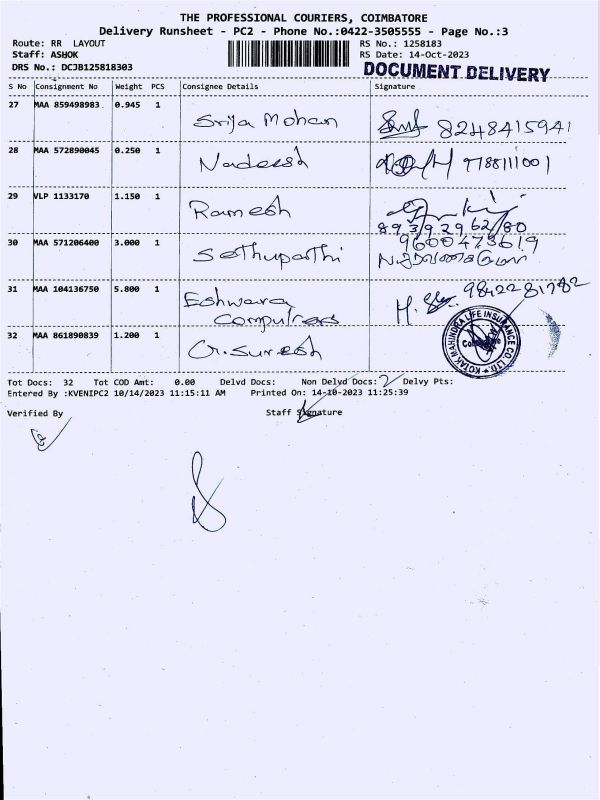 THE PROFESSIONAL COURIERS, COIMBATORE
Delivery Runsheet - PC2 - Phone No.:0422-3505555 - Page No.:3
Route: RR LAYOUT
RS No.: 1258183
Staff: ASHOK
RS Date: 14-Oct-2023
DRS No.: DCJB125818303
DOCUMENT DELIVERY
S No Consignment No Weight PCS Consignee Details Signature
27 MAA 859498983 0.945 1 Srija Mohan 8248415941
28 MAA 572890045 0.250 1 Nadeesh 7788111001
29 VLP 1133170 1.150 1 Ramesh
8939296280
30 MAA 571206400 3.000 1 Sethuparthi 9600473619
31 MAA 104136750 5.800 1 Eshwara 9842281782
Computers
32 MAA 861890839 1.200 1 G.Suresh
KOTAK MAHINDRA LIFE INSURANCE CO. LTD.
Tot Docs: 32 Tot COD Amt: 0.00 Delvd Docs: Non Delyd Docs: 2 Delvy Pts:
Entered By :KVENIPC2 10/14/2023 11:15:11 AM Printed On: 14-10-2023 11:25:39
Verified By Staff Signature